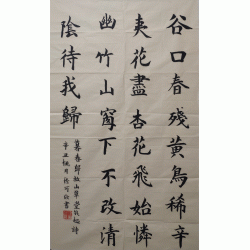 谷口春殘黃鳥稀辛
夷花盡杏花飛始憐
幽竹山窗下不改清
陰待我歸
暮春歸故山草堂錢起詩
辛丑 月 書